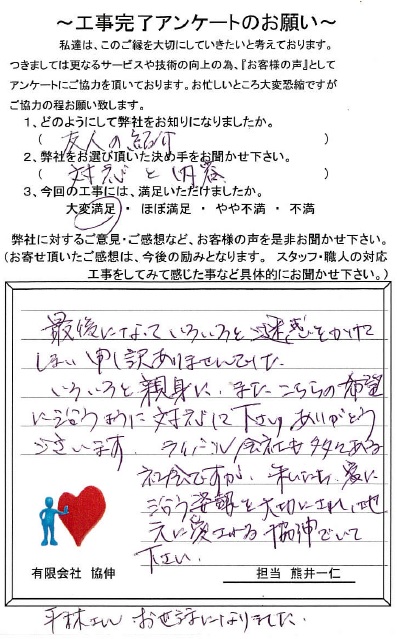 ～工事完了アンケートのお願い～
私達は、このご縁を大切にしていきたいと考えております。
つきましては更なるサービスや技術の向上の為、『お客様の声』として
アンケートにご協力を頂いております。お忙しいところ大変恐縮ですが
ご協力の程お願い致します。
1、どのようにして弊社をお知りになりましたか。
（ 友人の紹介 ）
2、弊社をお選び頂いた決め手をお聞かせ下さい。
（ 対応と内容 ）
3、今回の工事には、満足いただけましたか。
大変満足 ・ ほぼ満足 ・ やや不満 ・ 不満
弊社に対するご意見・ご感想など、お客様の声を是非お聞かせ下さい。
（お寄せ頂いたご感想は、今後の励みとなります。 スタッフ・職人の対応
工事をしてみて感じた事など具体的にお聞かせ下さい。）
最後になっていろいろと迷惑をかけて
しまい申し訳ありませんでした。
いろいろと親身に、またこちらの希望
に沿うように対応して下さりありがとう
ございます。 ライバル会社も多々ある
社会ですが、
沿う姿勢を大切にされ、地
元に愛される協伸でいて
下さい。
有限会社 協伸
担当 熊井一仁
平林さん お世話になりました。